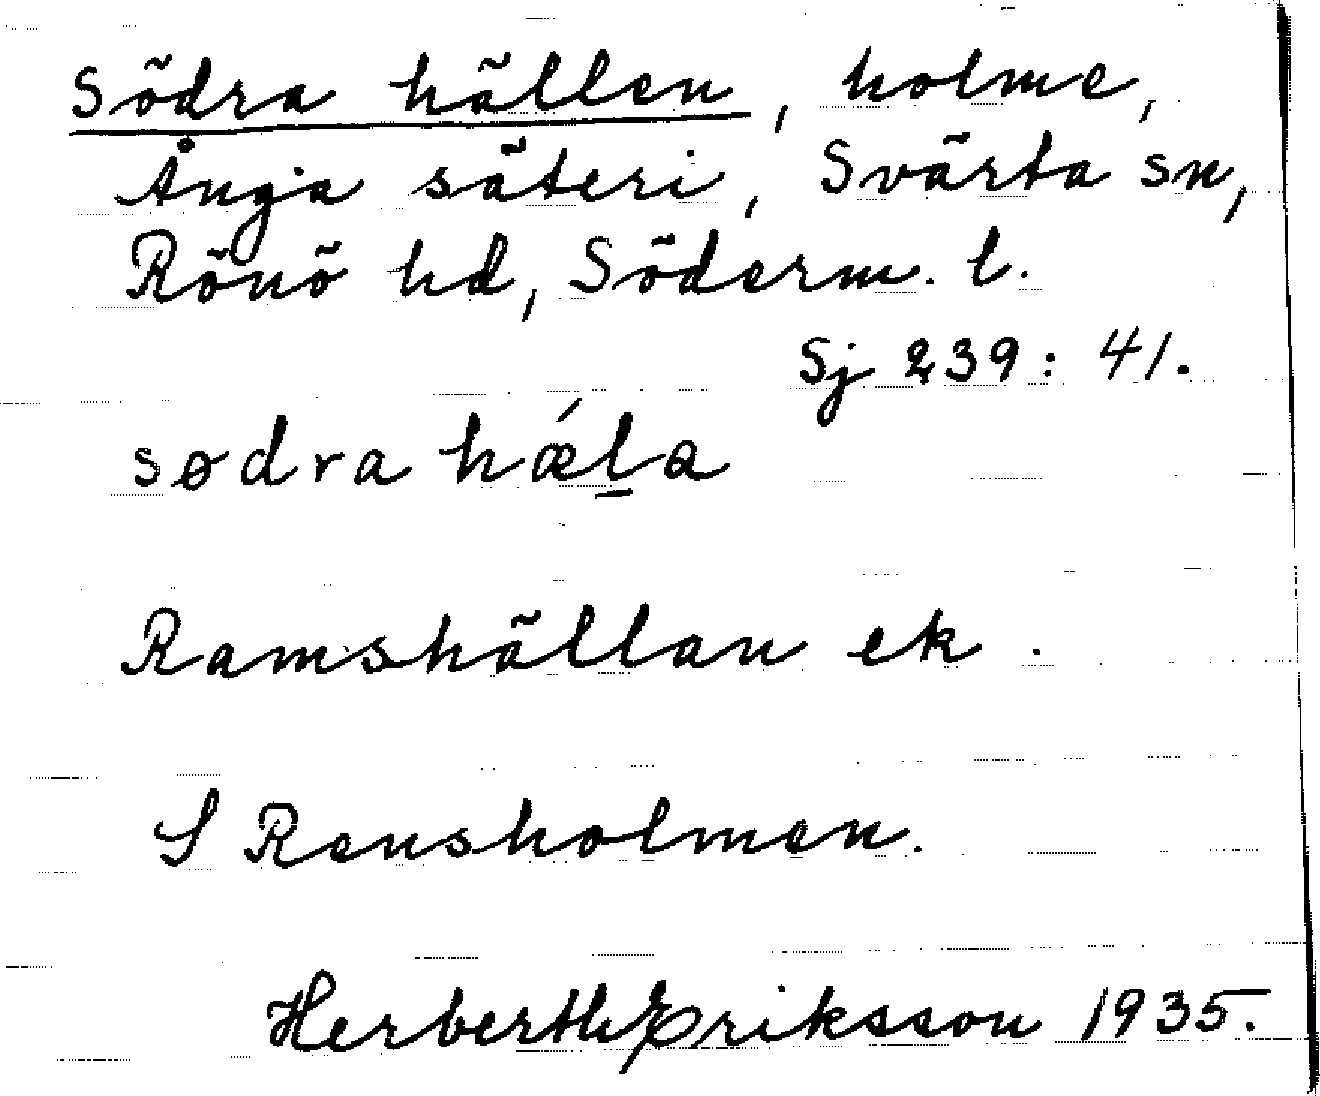 Södra hällen, holme,
Ånga säteri, Svärta sn,
Rönö hd, Söderm. l.
Sj 239: 41.
sødra hǽl̲a
Ramshällan ek.
S Rensholmen.
Herberth Eriksson 1935.